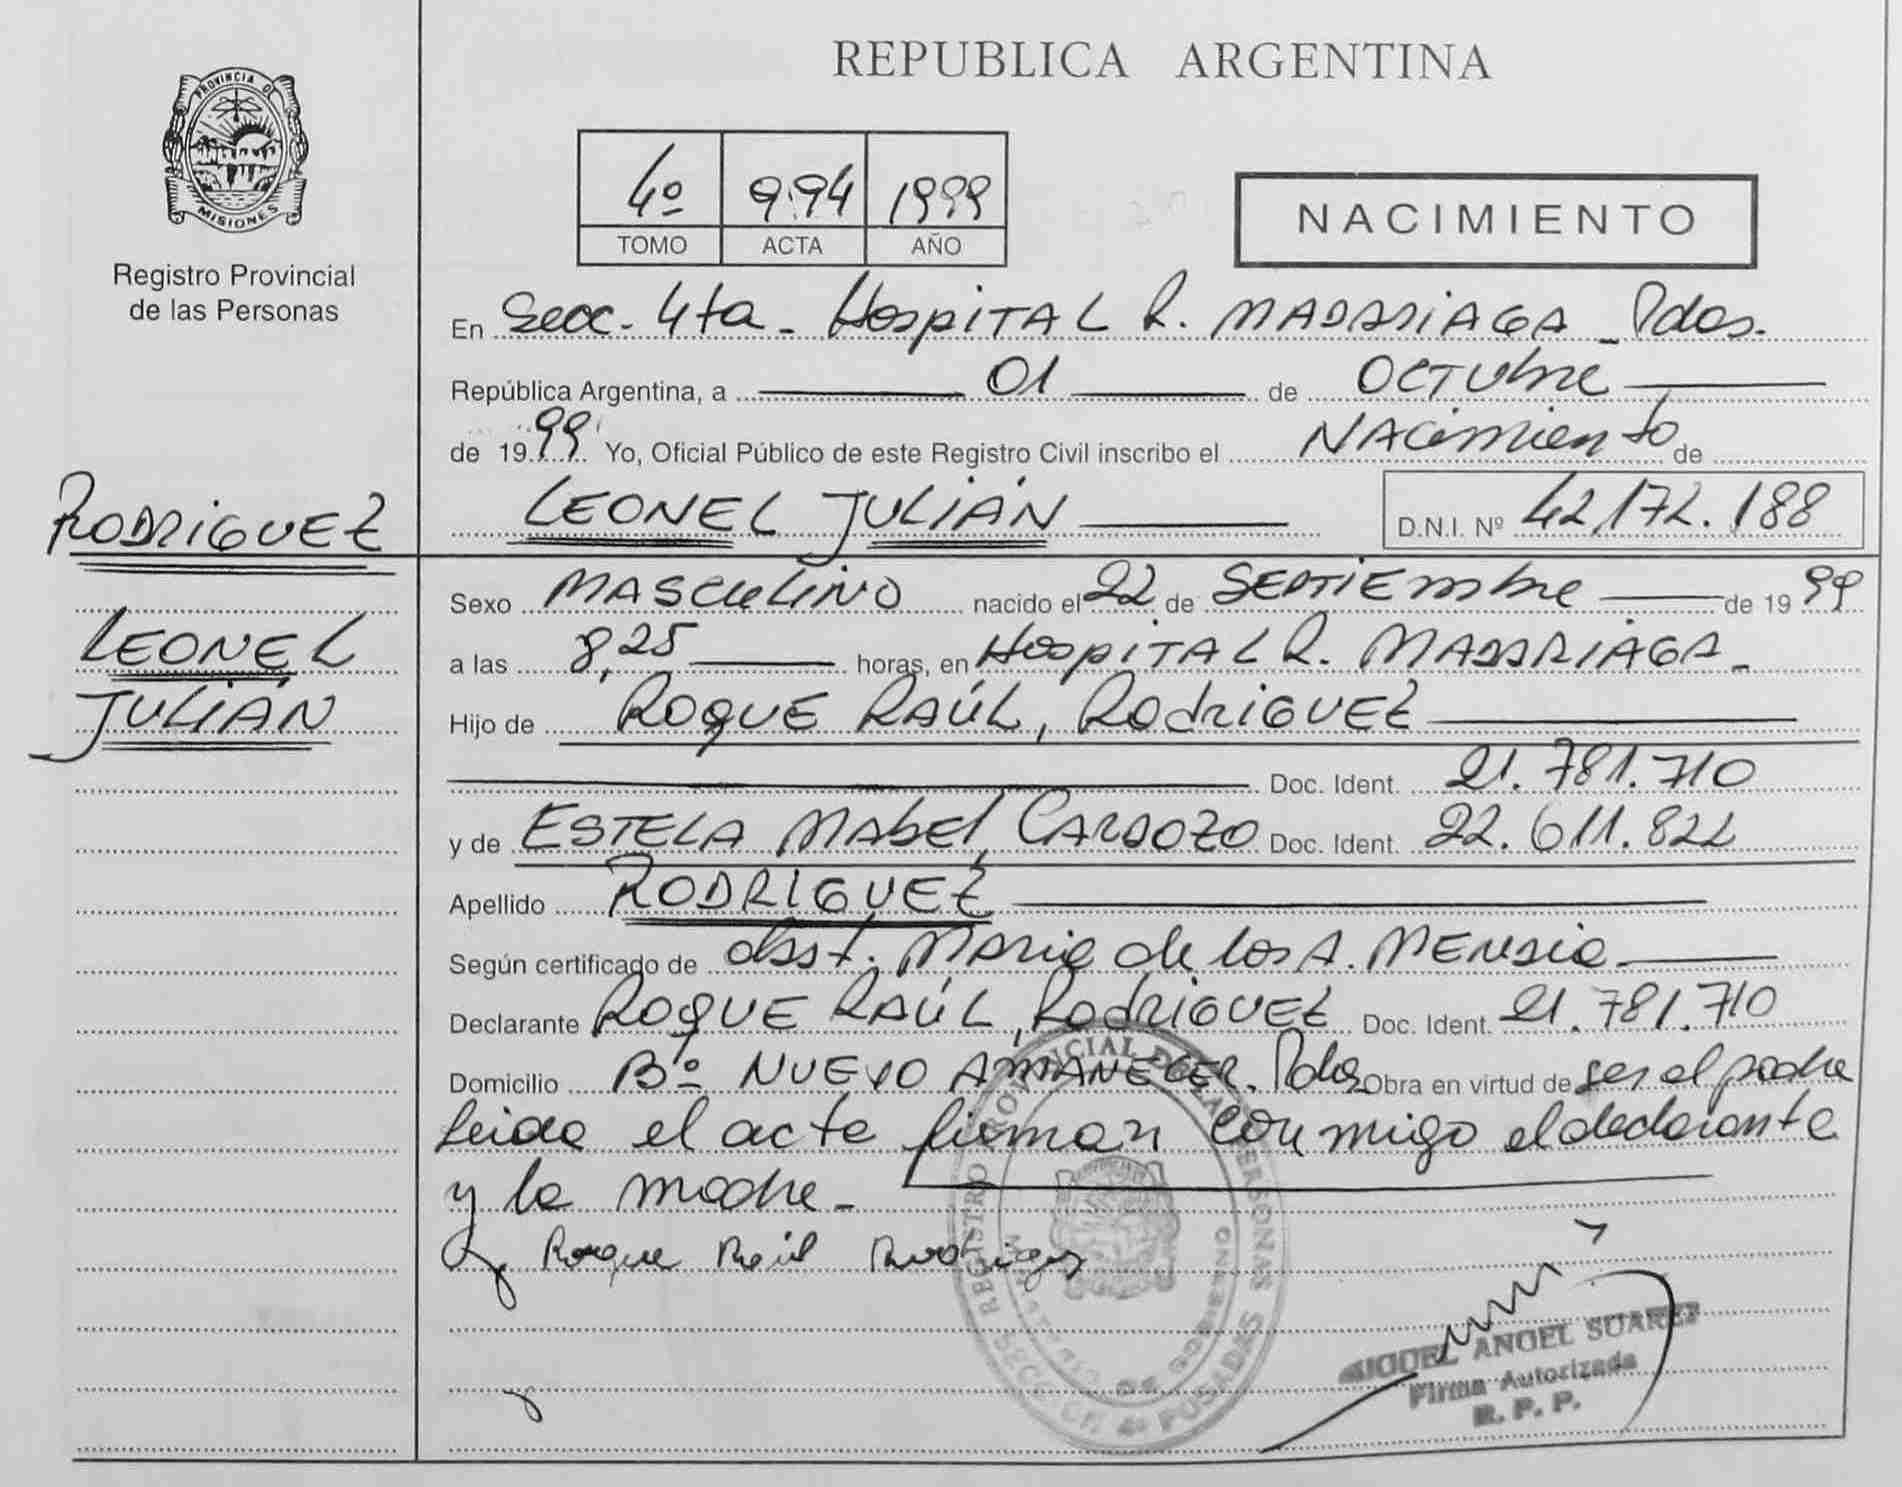 PROVINCIA DE
MISIONES
Registro Provincial
de las Personas
RODRIGUEZ
LEONEL
JULIÁN
REPUBLICA ARGENTINA
4º 994 1999
TOMO ACTA AÑO
NACIMIENTO
En Secc. 4ta - Hospital R. MADARIAGA - Pdas.
República Argentina, a 01 de Octubre
de 1999 Yo, Oficial Público de este Registro Civil inscribo el NACimiento de
LEONEL JULIÁN D.N.I. Nº 42.172.188
Sexo MASCULINO nacido el 22 de SEPTIEmbre de 1999
a las 8,25 horas, en Hospital R. MADARIAGA -
Hijo de ROQUE RAÚL, RodRIGUEZ
Doc. Ident. 21.781.710
y de ESTELA MAbel, CARDOZO Doc. Ident. 22.611.822
Apellido RODRIGUEZ
Según certificado de obst. Maria de los A.
Declarante ROQUE RAÚL, RodRIGUEZ Doc. Ident. 21.781.710
Domicilio Bº NUEVO AMANECER. Pdas Obra en virtud de ser el padre
leida el acta firman conmigo el declarante
y la madre -
Roque Raúl Rodrigez
REGISTRO PROVINCIAL DE LAS PERSONAS
MINISTERIO DE GOBIERNO
SECCION 4a POSADAS
MIGUEL ANGEL SUAREZ
Firma Autorizada
R. P. P.